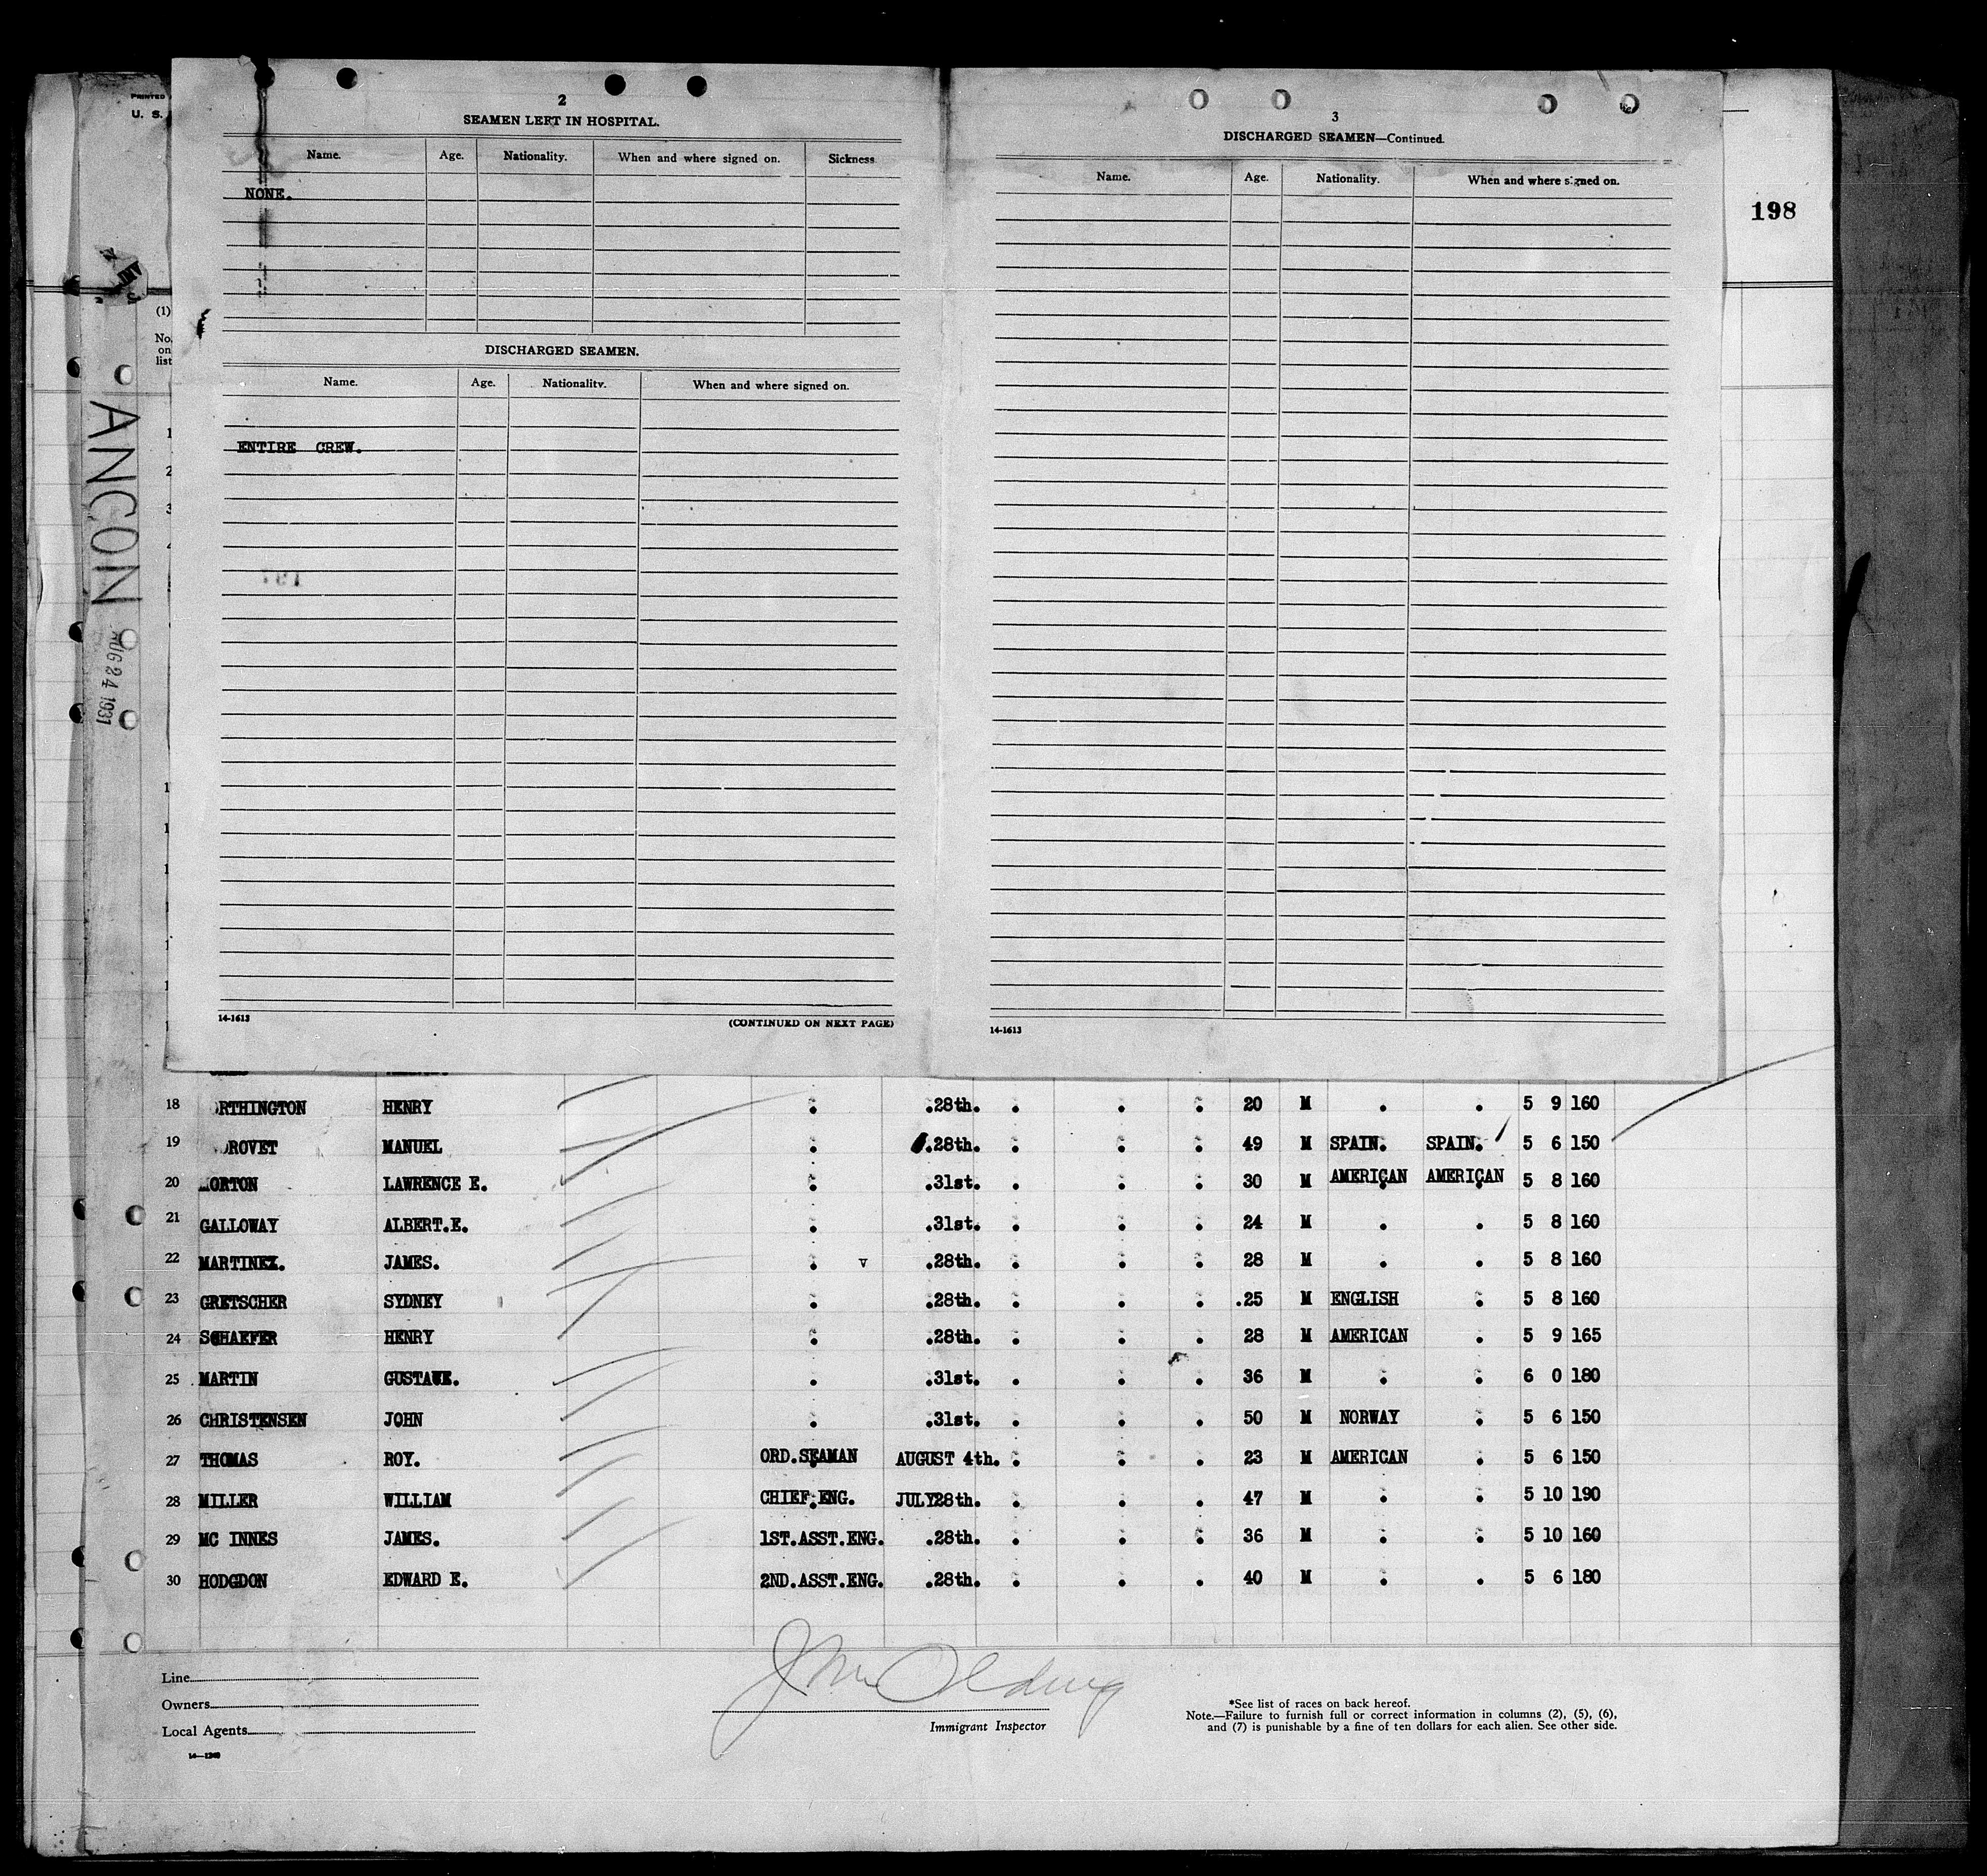 PRINTED
U. S.
198
2
SEAMEN LEFT IN HOSPITAL.
Name. Age. Nationality. When and where signed on. Sickness
NONE.
DISCHARGED SEAMEN.
Name. Age. Nationality. When and where signed on.
ENTIRE CREW.
14-1613 (CONTINUED ON NEXT PAGE)
3
DISCHARGED SEAMEN—Continued.
Name. Age. Nationality. When and where signed on.
14-1613
(1)
No.
on
list
ANCON
AUG 24 1931
1
2
3
18 ORTHINGTON HENRY . .28th. . . . 20 M . . 5 9 160
19 ROVET MANUEL . .28th. . . . 49 M SPAIN. SPAIN. 5 6 150
20 ORTON LAWRENCE E. . .31st. . . . 30 M AMERICAN AMERICAN 5 8 160
21 GALLOWAY ALBERT.E. . .31st. . . . 24 M . . 5 8 160
22 MARTINEZ. JAMES. . v .28th. . . . 28 M . . 5 8 160
23 GRETSCHER SYDNEY . .28th. . . . .25 M ENGLISH . 5 8 160
24 SCHAEFER HENRY . .28th. . . . 28 M AMERICAN . 5 9 165
25 MARTIN GUSTAVE. . .31st. . . . 36 M . . 6 0 180
26 CHRISTENSEN JOHN . .31st. . . . 50 M NORWAY . 5 6 150
27 THOMAS ROY. ORD.SEAMAN AUGUST 4th. . . . 23 M AMERICAN . 5 6 150
28 MILLER WILLIAM CHIEF.ENG. JULY28th. . . . 47 M . . 5 10 190
29 MC INNES JAMES. 1ST.ASST.ENG. .28th. . . . 36 M . . 5 10 160
30 HODGDON EDWARD E. 2ND.ASST.ENG. .28th. . . . 40 M . . 5 6 180
Line
Owners
Local Agents
14—1240
Immigrant Inspector
*See list of races on back hereof.
Note.—Failure to furnish full or correct information in columns (2), (5), (6),
and (7) is punishable by a fine of ten dollars for each alien. See other side.